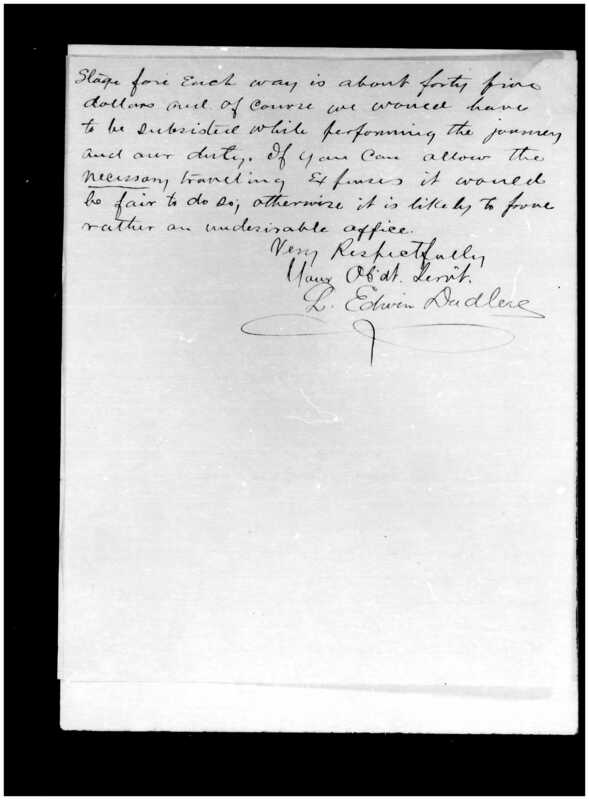 Stage fare Each way is about forty five
dollars and of course we would have
to be subsisted while performing the journey
and our duty. If you can allow the
necessary traveling Expenses it would
be fair to do so, otherwise it is likely to prove
rather an undesirable office.
Very Respectfully
Your Obdt. Servt.
L. Edwin Dudley